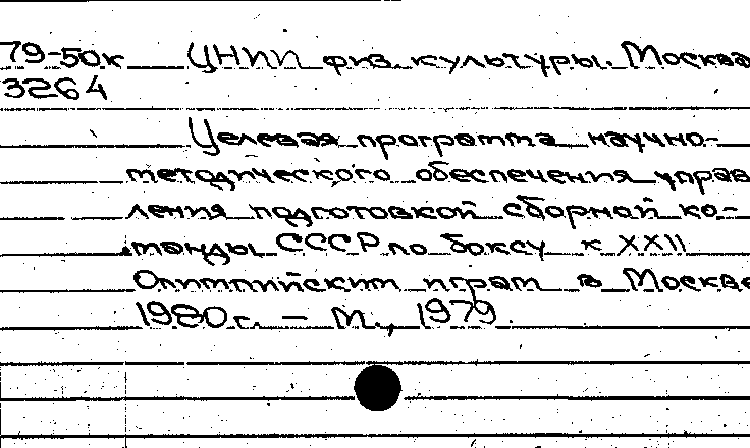 79-50к ЦНИИ физ. культуры. Москва
3264
Целевая программа научно-
методического обеспечения управ
ления подготовкой сборной ко-
манды СССР по боксу к XXII
Олимпийским играм в Москве
1980г. – М., 1979.